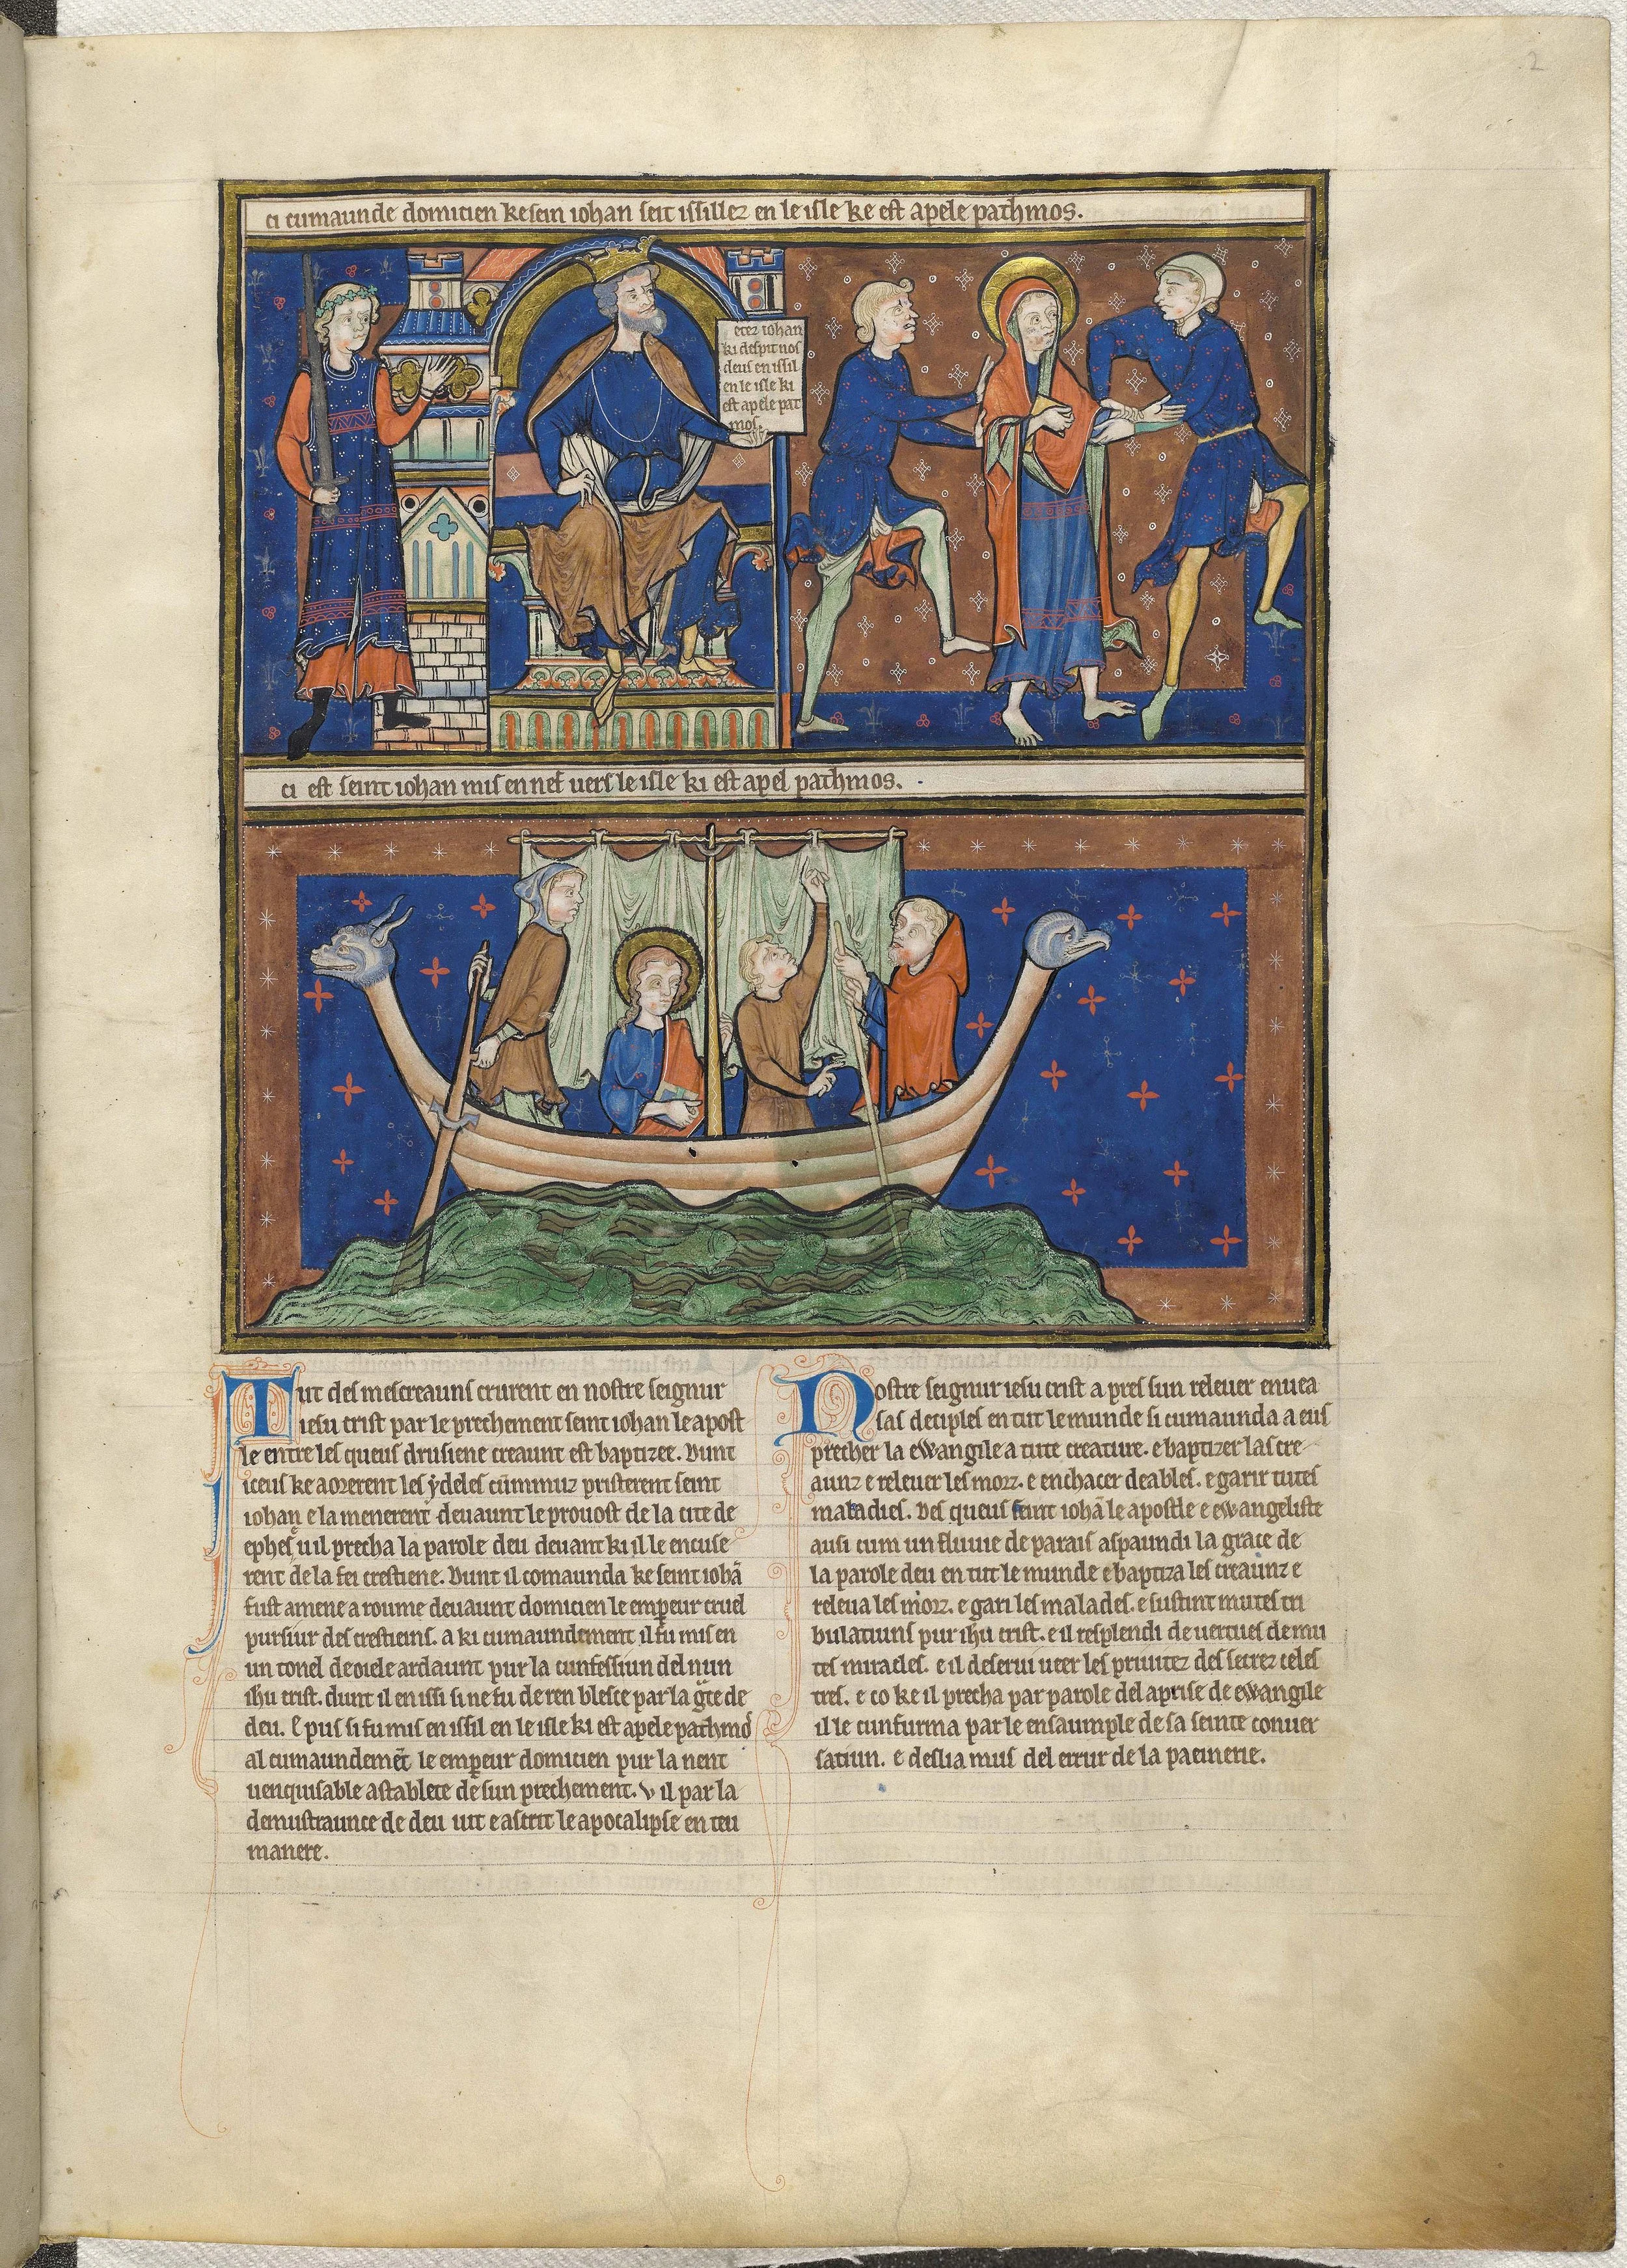 2
ci cumaunde domicien ke sein iohan seit issillez en le isle ke est apele pathmos.
etez iohan
ki despit nos
deus en issil
en le isle ki
est apele pat
mos.
ci est seint iohan mis en nef vers le isle ki est apel pathmos.
Tut des mescreauns crurent en nostre seignur
iesu crist par le prechement seint iohan le apost
le entre les queus drusiene creaunt est baptizee. Dunt
iceus ke aorerent les ydeles cummuz pristerent seint
iohan e la menerent deuaunt le prouost de la cite de
ephes u il precha la parole deu deuant ki il le encuse
rent de la fei crestiene. Dunt il comaunda ke seint iohā
fust amene a roume deuaunt domicien le empeur cruel
pursiur des crestieins. a ki cumaundement il fu mis en
un tonel de oiele ardaunt pur la cunfessiun del nun
ihu crist. dunt il en issi si ne fu de ren blesce par la gce de
deu. E pus si fu mis en issil en le isle ki est apele pathmos
al cumaundemēt le empeur domicien pur la nent
uenquisable astablete de sun prechement. V il par la
demustraunce de deu uit e ascrit le apocalipse en teu
manere.
Nostre seignur iesu crist a pres sun releuer enuea
sas deciples en tut le munde si cumaunda a eus
precher la ewangile a tute creature. e baptizer las cre
aunz e releuer les morz. e enchacer deables. e garir tutes
maladies. Des queus seint iohā le apostle e ewangeliste
ausi cum un fluuie de parais aspaundi la grace de
la parole deu en tut le munde e baptiza les creaunz e
releua les morz. e gari les malades. e sustint mutes tri
bulatiuns pur ihu crist. e il resplendi de uertues de mu
tes miracles. e il deserui ueer les priuitez des secrez celes
tres. e co ke il precha par parole del aprise de ewangile
il le cunfurma par le ensaumple de sa seinte conuer
satiun. e deslia mus del errur de la paenerie.